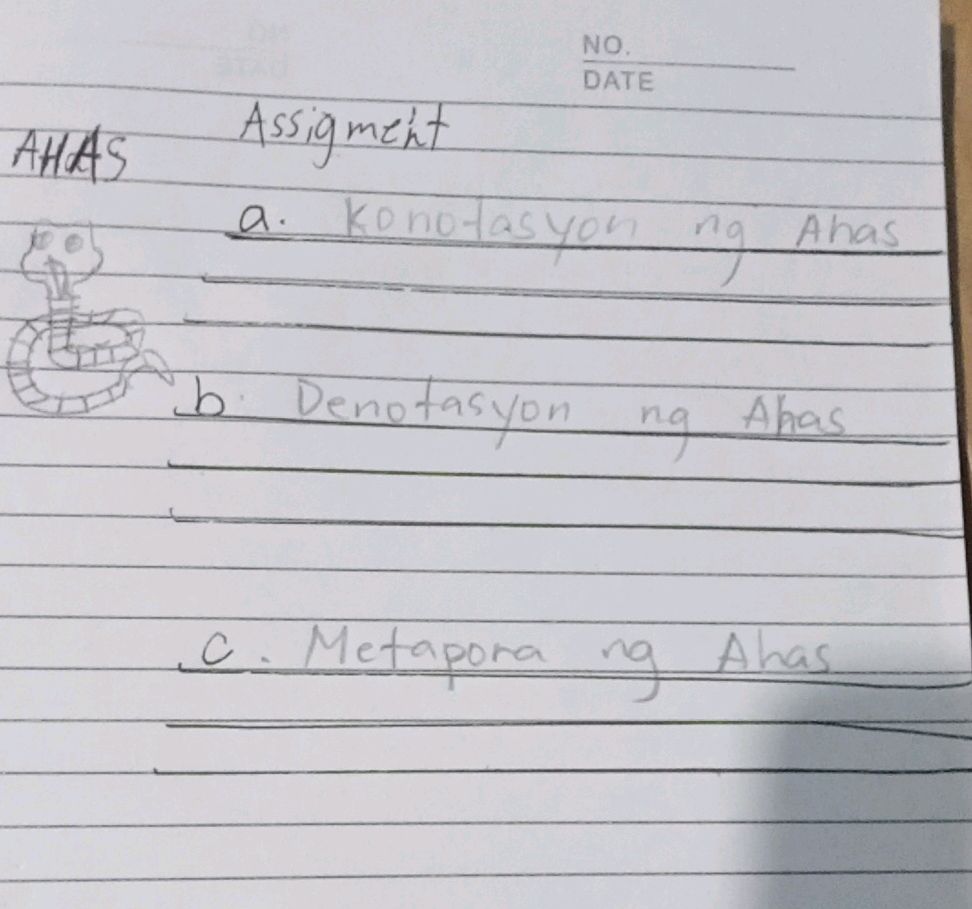 NO.
DATE
Assigment
AHAS
a. Konotasyon ng Ahas
b. Denotasyon ng Ahas
c. Metapora ng Ahas